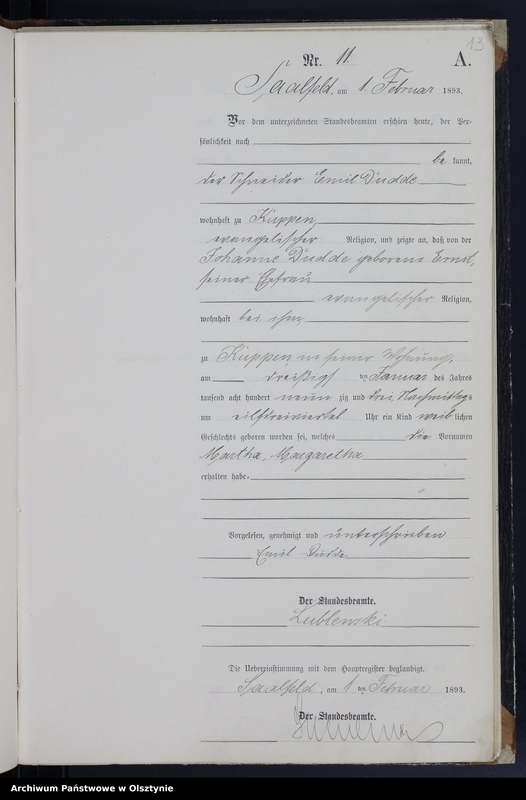 13
Nr. 11.
A.
Saalfeld, am 1. Februar 1893.
Vor dem unterzeichneten Standesbeamten erschien heute, der Per-
sönlichkeit nach
be kannt,
der Schneider Emil Dudde
wohnhaft zu Kuppen,
evangelischer Religion, und zeigte an, daß von der
Johanne Dudde geborene Ernst,
seiner Ehefrau
evangelischer Religion,
wohnhaft bei ihm,
zu Kuppen in seiner Wohnung,
am dreißigst ten Januar des Jahres
tausend acht hundert neun zig und drei, Nachmittags
um eilfdreiviertel Uhr ein Kind weib lichen
Geschlechts geboren worden sei, welches die Vornamen
Martha, Margaretha
erhalten habe.
Vorgelesen, genehmigt und unterschrieben
Emil Dudde
Der Standesbeamte.
Lublewski
Die Uebereinstimmung mit dem Hauptregister beglaubigt.
Saalfeld, am 1 ten Februar 1893.
Der Standesbeamte.
Archiwum Państwowe w Olsztynie